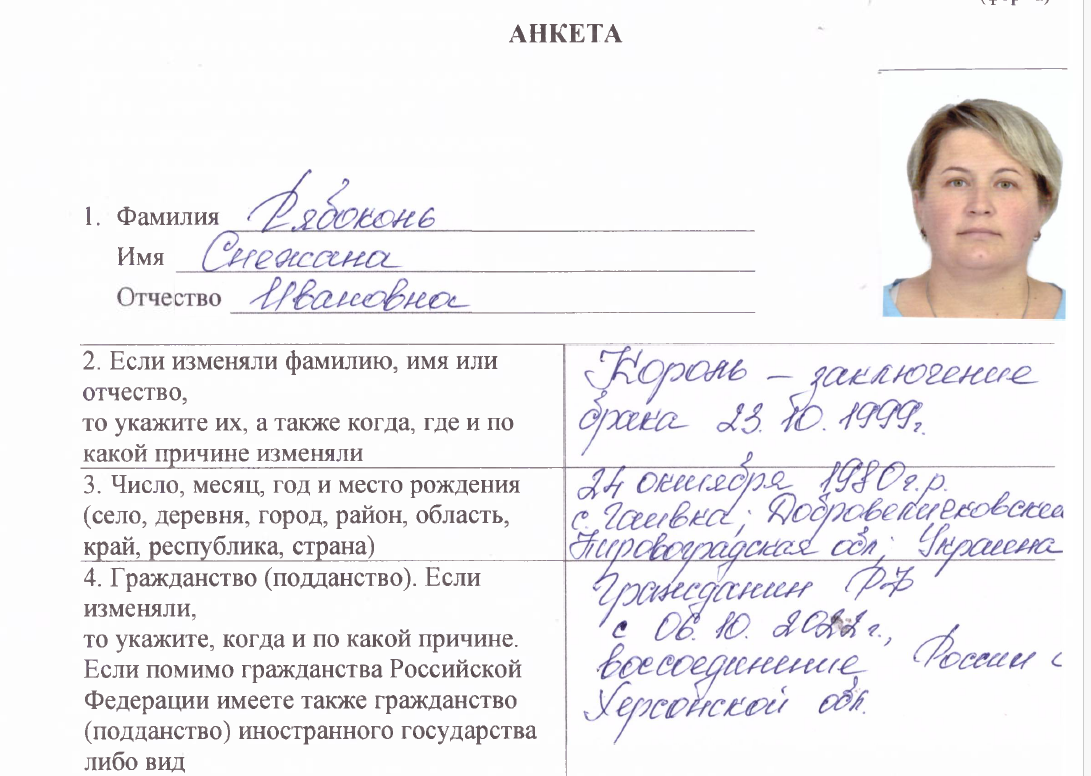 АНКЕТА
1. Фамилия Рябоконь
Имя Снежана
Отчество Ивановна
2. Если изменяли фамилию, имя или
отчество,
то укажите их, а также когда, где и по
какой причине изменяли
Король – заключение
брака 23.10.1999г.
3. Число, месяц, год и место рождения
(село, деревня, город, район, область,
край, республика, страна)
24 октября 1980г.р.
с. Гаивка;
Кировоградская обл; Украина
4. Гражданство (подданство). Если
изменяли,
то укажите, когда и по какой причине.
Если помимо гражданства Российской
Федерации имеете также гражданство
(подданство) иностранного государства
либо вид
Гражданин РФ
с 06.10.2022г.,
воссоединение России с
Херсонской обл.